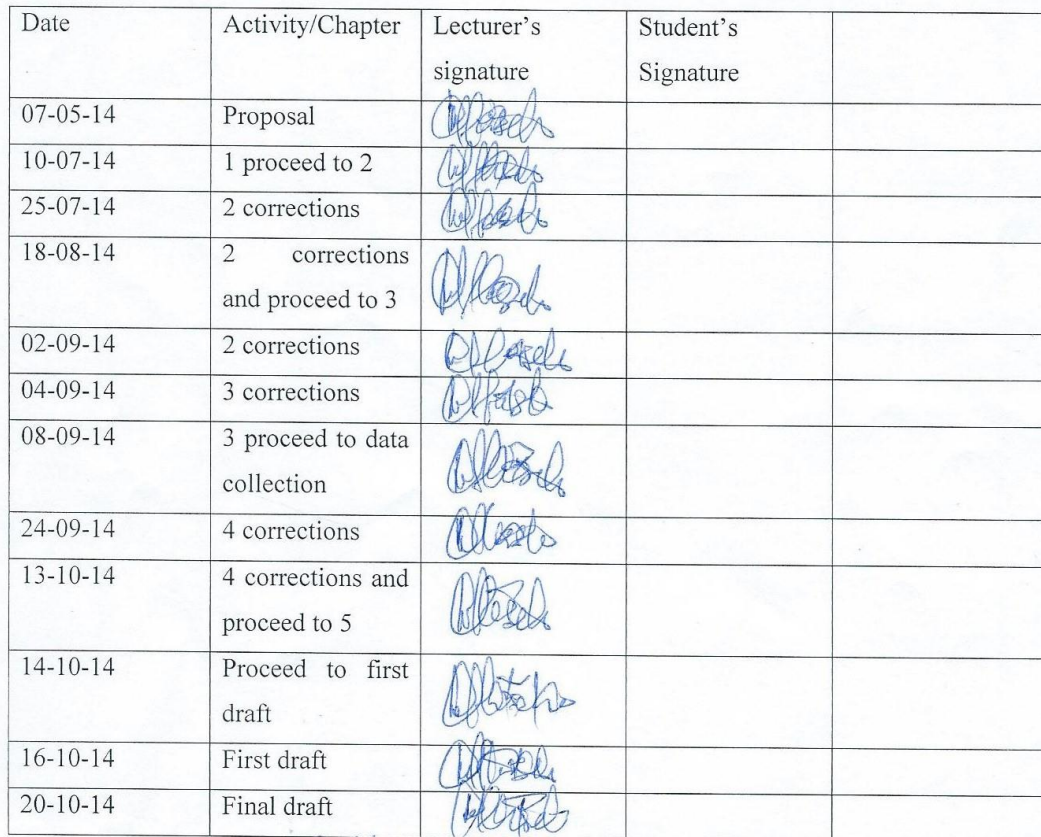 Date Activity/Chapter Lecturer's Student's
signature Signature
07-05-14 Proposal
10-07-14 1 proceed to 2
25-07-14 2 corrections
18-08-14 2 corrections
and proceed to 3
02-09-14 2 corrections
04-09-14 3 corrections
08-09-14 3 proceed to data
collection
24-09-14 4 corrections
13-10-14 4 corrections and
proceed to 5
14-10-14 Proceed to first
draft
16-10-14 First draft
20-10-14 Final draft